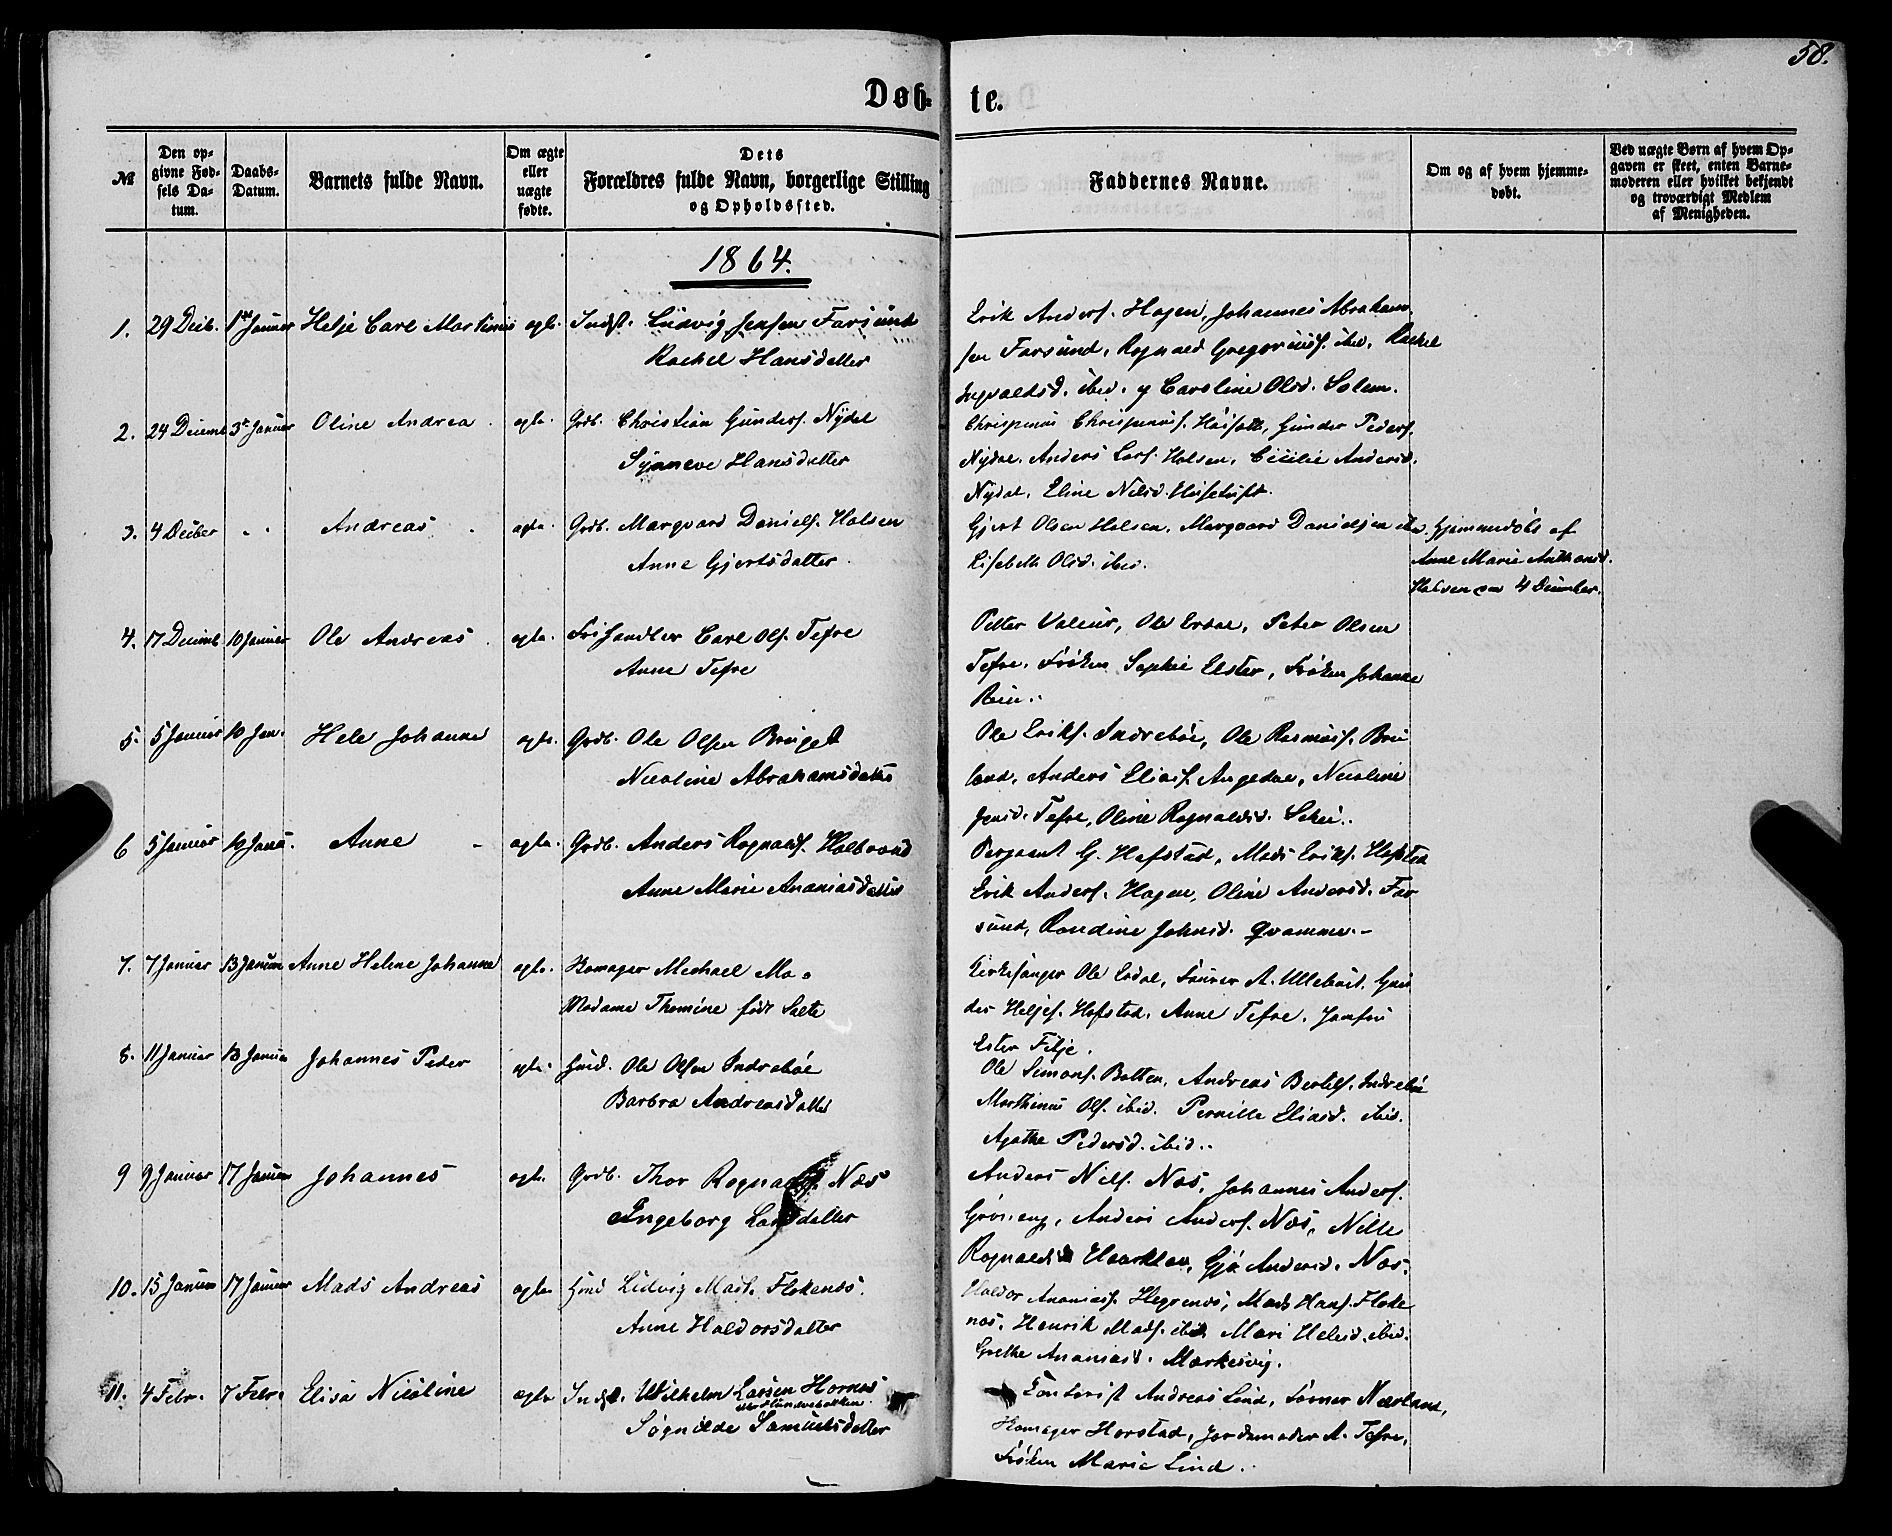 58.
Døb-
te.
№
Den op-
givne Fød-
sels Da-
tum.
Daabs-
Datum.
Barnets fulde Navn.
Om ægte
eller
uægte
fødte.
Dets
Forældres fulde Navn, borgerlige Stilling
og Opholdssted.
Faddernes Navne.
Om og af hvem hjemme-
døbt.
Ved uægte Børn af hvem Op-
gaven er skeet, enten Barne-
moderen eller hvilket bekjendt
og troværdigt Medlem
af Menigheden.
1864.
1. 29 Decb. 1ste Januar Helje Carl Martinus ægte. Indst. Ludvig Jensen Farsund
Rachel Hansdatter
Erik Anders. Hagen, Johannes Abraham-
sen Farsund, Rognald Gregorius. ibid, Rachel
Ingvaldsd. ibid. g Caroline Olsd. Solem.
2. 24 Decemb 3de Januar Oline Andrea. ægte. Grdb. Christian Gunders. Nydal
Synneve Hansdatter
Chrispinus Chrispinus. Gunder Peders.
Nydal. Anders Lars. Halsen, Cicilie Andersd.
Nydal, Eline Nelsd. Husetuft.
3. 4 Decber " " Andreas. ægte. Grdb. Marqvard Daniels. Halsen
Anne Gjertsdatter.
Gjert Olsen Halsen, Marqvard Danielsen ibd.
Lisebeth Olsd. ibid.
Hjemmedøbt af
Anne Marie Anthonsd.
Halsen 4 December.
4. 17 Decemb 10 Januar Ole Andreas. ægte. Frihandler Carl Ols. Tefre
Anne Tefre
Petter Valeur, Ole Erdal, Peter Olsen
Tefre. Frøken Sophie Elster, Frøken Johanne
Rein.
5. 5 Januar 10 Jan. Hele Johanne ægte. Grdb. Ole Olsen Bruget
Nicoline Abrahamsdatter
Ole Eriks. Indrebøe, Ole Rasmus. Bru-
land, Anders Elias. Angedal, Nicoline
Jensd. Tefre, Oline Rognaldsd. Schei.
6 5 Januar 10 Janu. Anne - ægte. Grdb. Anders Rognalds. Halbrend
Anne Marie Ananiasdatter
Sergeant G. Hafstad, Mads Eriks. Hafstad
Erik Anders. Hagen, Oline Andersd. Far-
sund, Rondine Johnsd. Qvamme.-
7. 7 Januar 13 Januar Anne Helene Johanne ægte. Kemager Michael Mo.
Madame Thomine født Sælte
Kirkesanger Ole Erdal, A. Gun-
der Heljes. Hafstad. Anne Tefre. Jomfru
Ester Fitje.
8. 11 Januar 13 Januar Johannes Peder ægte. Huusd. Ole Olsen Indrebøe
Barbra Andreasdatter
Ole Simons. Botten, Andreas Bertels. Indrebø
Marthinus Ols. ibid. Pernille Eliasd. ibid.
Agathe Pedersd. ibid.
9 9 Januar 17 Januar Johannes ægte. Grdb. Thor Rognalds. Næs
Ingeborg Larsdatter
Anders Nils. Næs, Johannes Anders.
Grøneng, Anders Anders. Næs, Nille
Rognaldsd. Gjø. Andersd. Næs.
10. 15 Januar 17 Januar Mads Andreas ægte Huusd Ludvig Mads. Flokenæs.
Anne Haldorsdatter
Haldor Ananias. Hegrenæs, Mads Hans. Floke-
næs, Henrik Mads. ibid Mari Helsd. ibid.
Grethe Ananiasd. Markesvig.
11. 4 Febr. 7 Febr. Elisa Nicoline ægte Indst. Wilhelm Larsen Hornes
Søgnilde Samuelsdatter
Contorist Andreas Lind, Farver Næsland,
Kemager Horstad, Jordemoder A. Tefre,
Frøken Marie Lind.